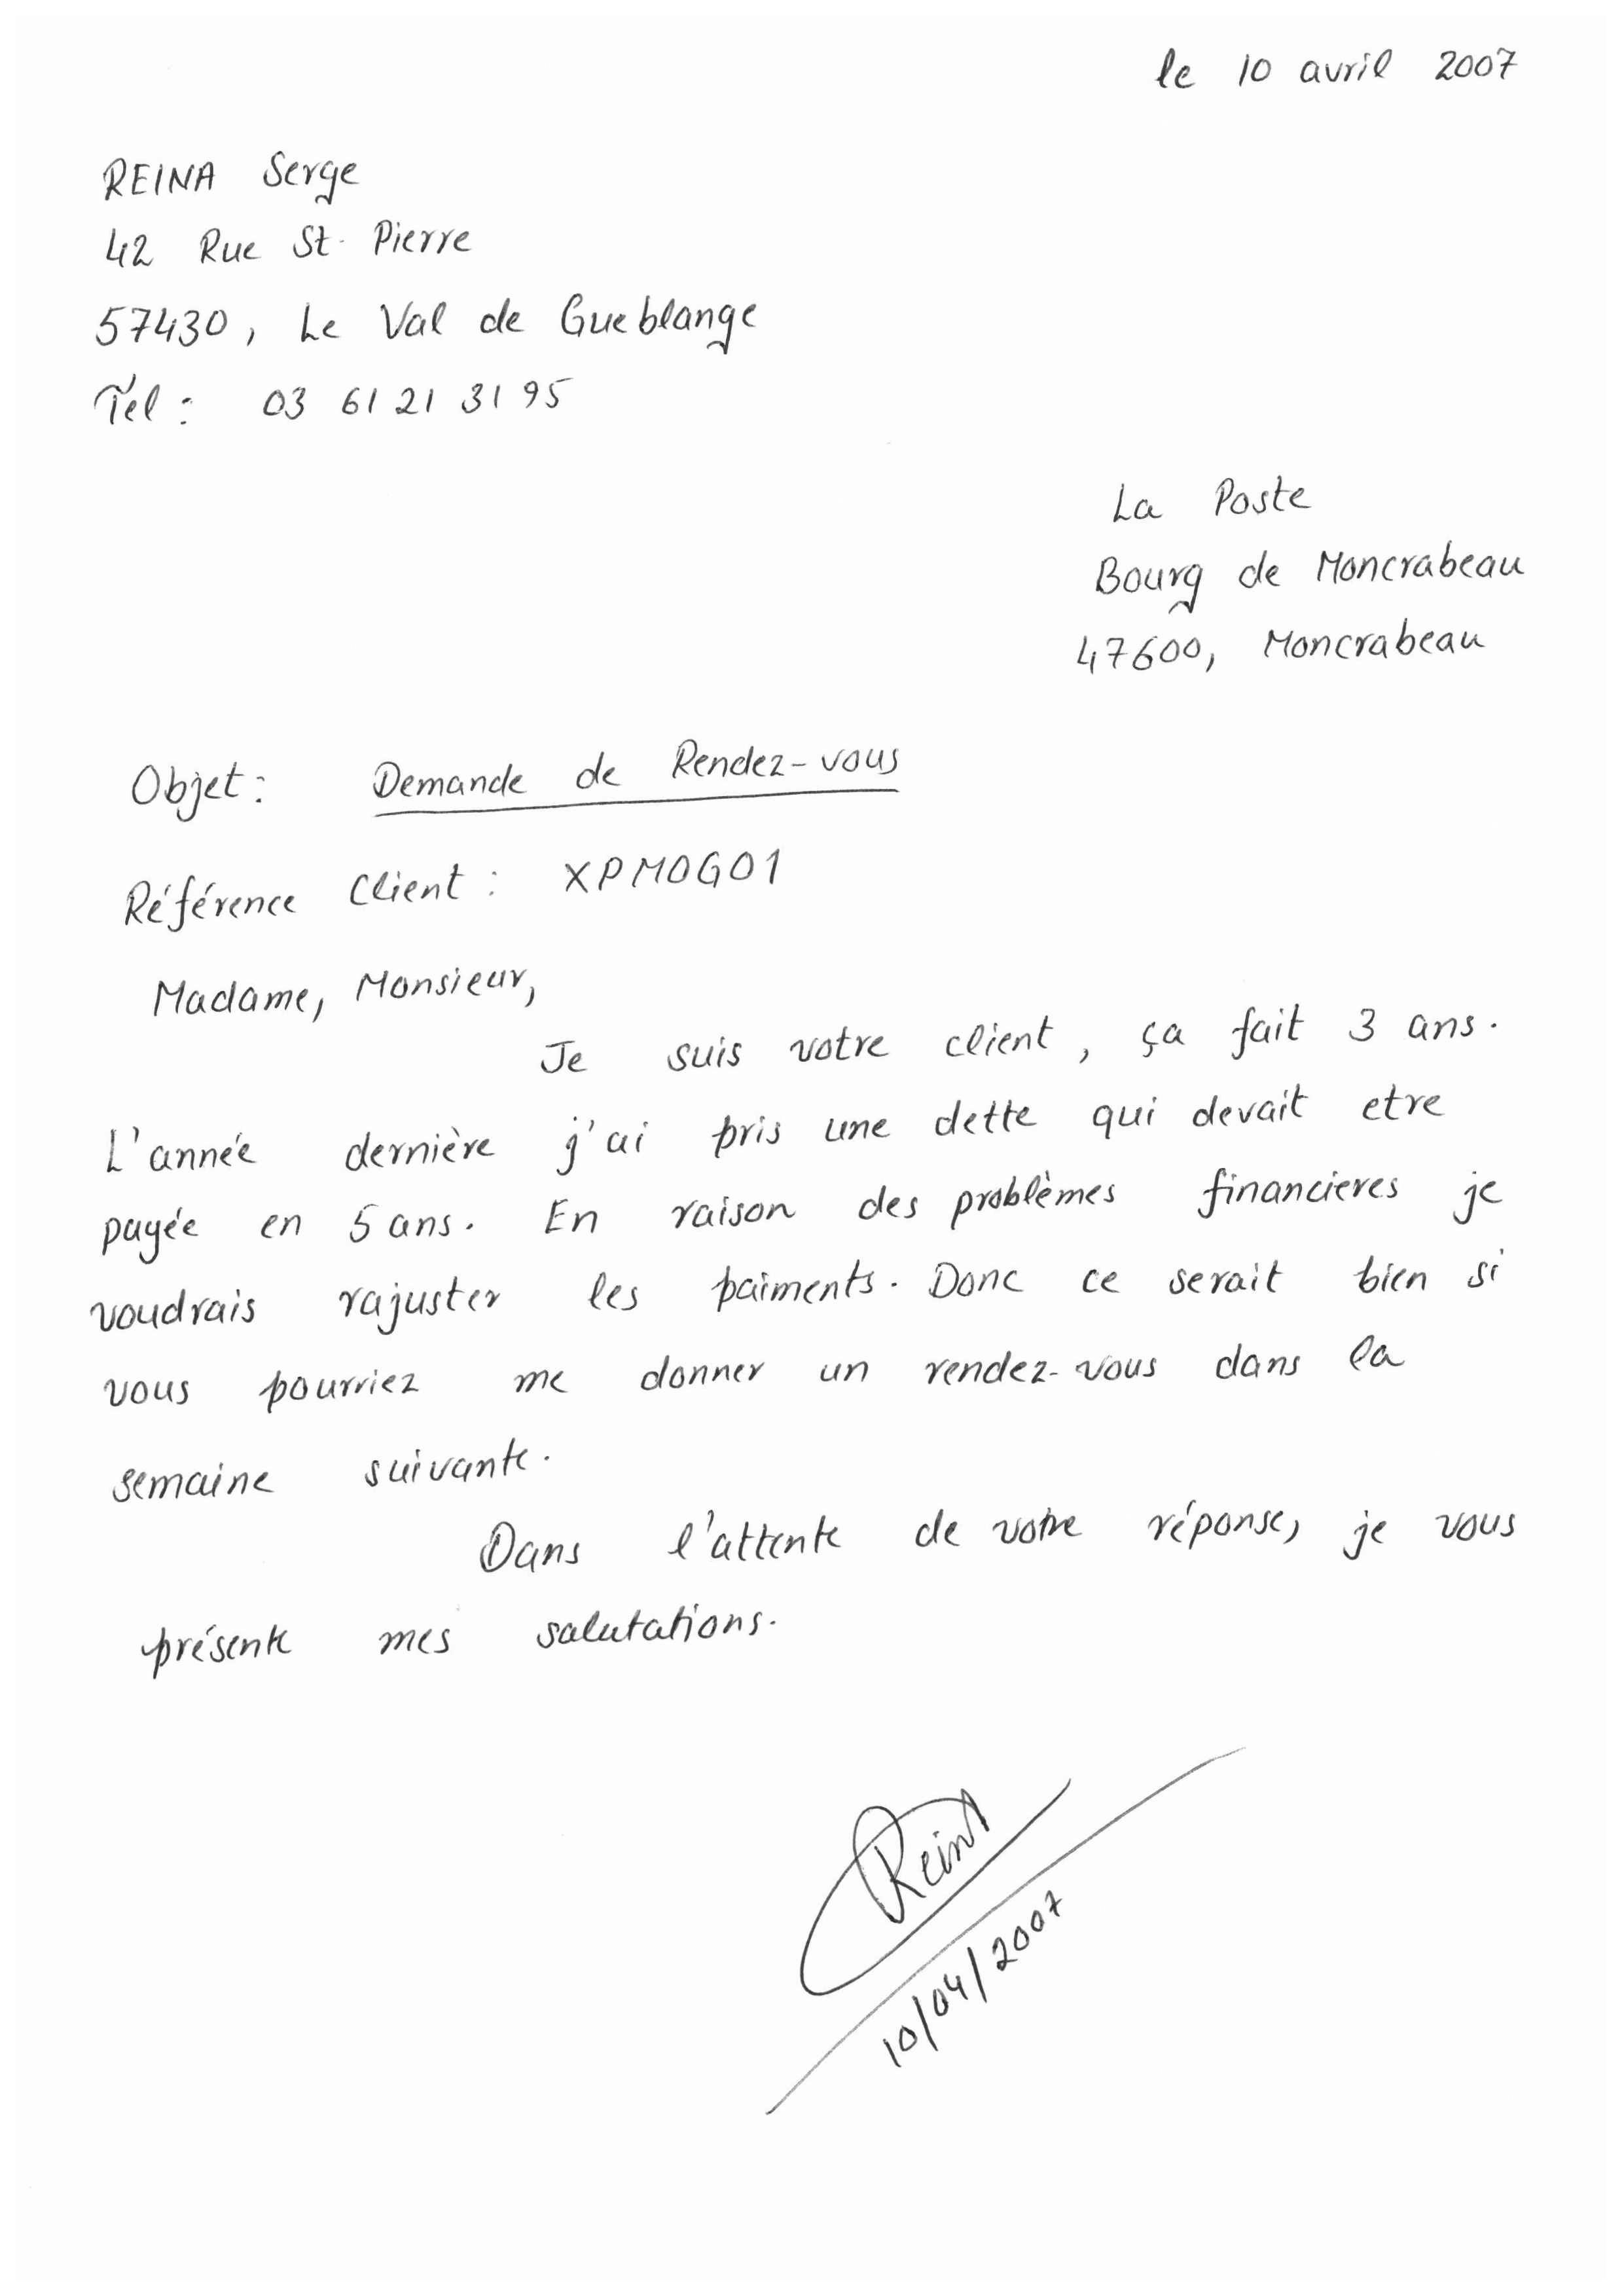 le 10 avril 2007
REINA Serge
42 Rue St. Pierre
57430, Le Val de Gueblange
Tél : 03 61 21 31 95
La Poste
Bourg de Moncrabeau
47600, Moncrabeau
Objet : Demande de Rendez-vous
Référence Client : XPMOG01
Madame, Monsieur,
Je suis votre client, ça fait 3 ans.
L'année dernière j'ai pris une dette qui devait etre
payée en 5 ans. En raison des problèmes financieres je
voudrais rajuster les paiments. Donc ce serait bien si
vous pourriez me donner un rendez-vous dans la
semaine suivante.
Dans l'attente de votre réponse, je vous
présente mes salutations.
Reina
10/04/2007